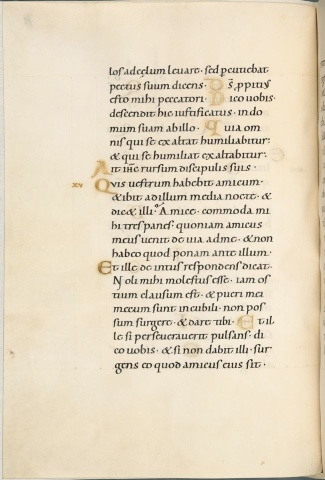 los ad cęlum leuare · sed percutiebat
pectus suum dicens · D̅s̅ ppitiꝰ
esto mihi peccatori · Dico uobis ·
descendit hic iustificatus · in do
mum suam ab illo · Quia om
nis qui se exaltat humiliabitur :
& qui se humiliat exaltabitur ·
Ait ihc̅ rursum discipulis suis ·
xv Quis uestrum habebit amicum ·
& ibit ad illum media nocte · &
dic& illi · Amice · commoda mi
hi tres panes · quoniam amicus
meus uenit de uia ad me · & non
habeo quod ponam ante illum ·
Et ille de intus respondens dicat ·
Noli mihi molestus esse · iam os
tium clausum est · & pueri mei
mecum sunt in cubili · non pos
sum surgere · & dare tibi · Et il
le si perseuerauerit pulsans · di
co uobis · & si non dabit illi · sur
gens eo quod amicus eius sit ·